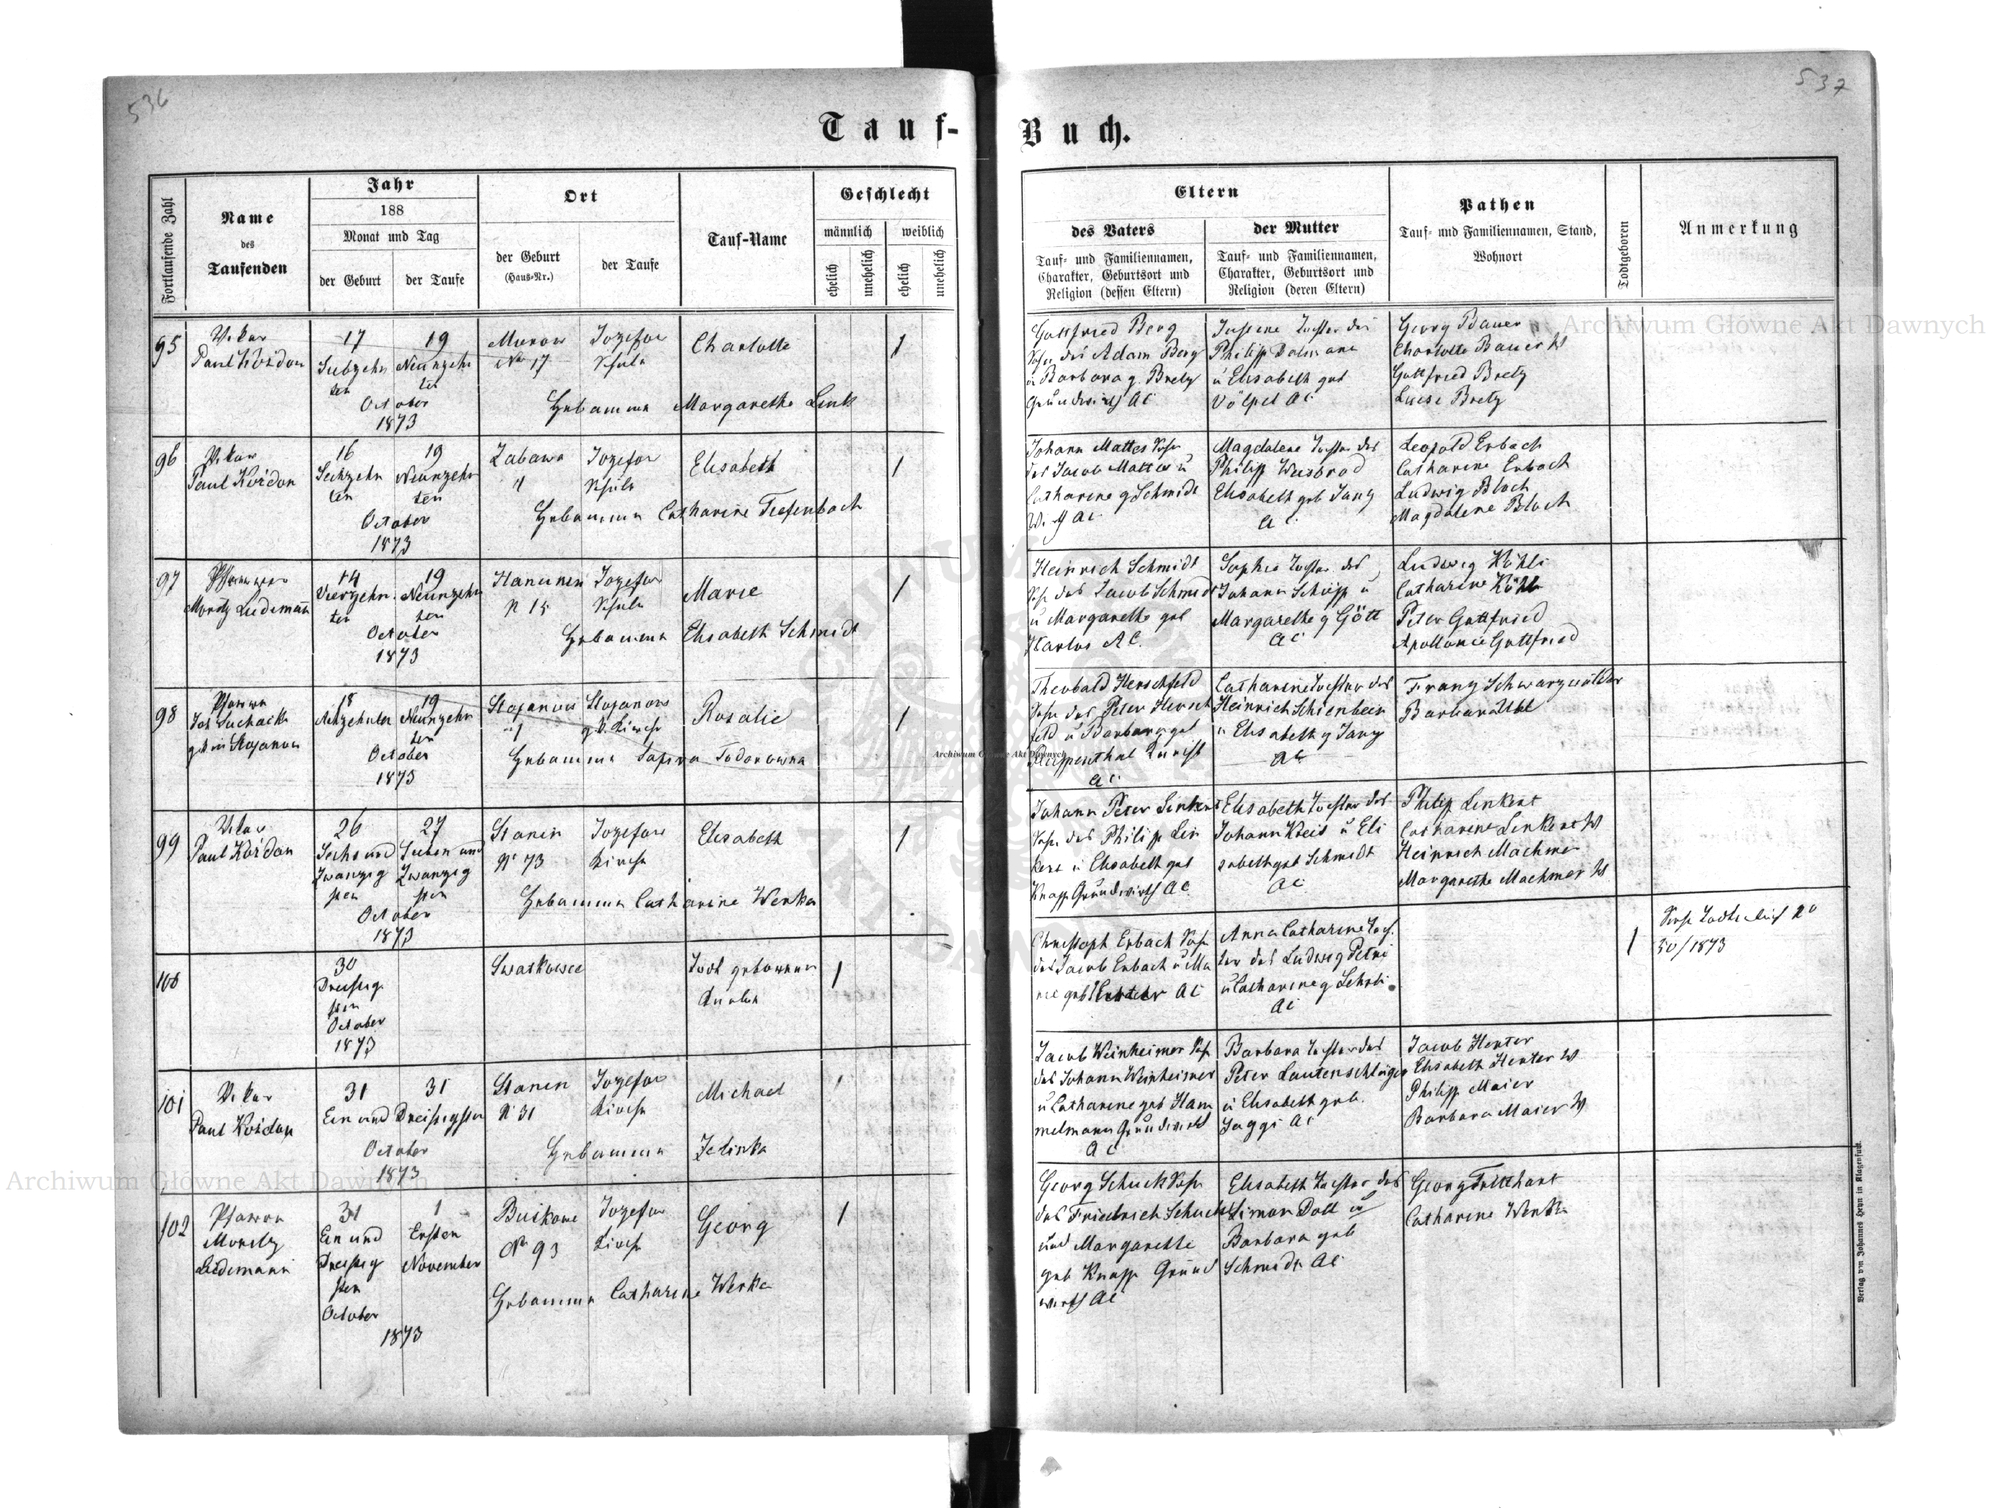 536
537
Tauf-Buch.
Fortlaufende Zahl
Name
des
Taufenden
Jahr
188
Monat und Tag
der Geburt
der Taufe
Ort
der Geburt
(Haus-Nr.)
der Taufe
Tauf-Name
Geschlecht
männlich
weiblich
ehelich
unehelich
ehelich
unehelich
Eltern
des Vaters
Tauf- und Familiennamen,
Charakter, Geburtsort und
Religion (dessen Eltern)
der Mutter
Tauf- und Familiennamen,
Charakter, Geburtsort und
Religion (deren Eltern)
Pathen
Tauf- und Familiennamen, Stand,
Wohnort
Todtgeboren
Anmerkung
95
Vikar
Paul Kożdon
17
Siebzehn
ten
19
Neunzehn
ten
October
1873
No 17
Jozefow
Schule
Charlotte
1
Hebamme Margarethe Link
Gottfried Berg
Sohn des Adam Berg
u Barbara g. Bretz
Grundwirth AC
Tochter des
Philipp
u Elisabeth geb
Völpel AC
Georg Bauer
Charlotte Bauer W
Gottfried Bretz
Luise Bretz
96
Vikar
Paul Kożdon
16
Sechzehn
ten
19
Neunzehn
ten
October
1873
Zabawa
"
Jozefow
Schule
Elisabeth
1
Hebamme Catharine Tiefenbach
Johann Mattes Sohn
des Jacob Mattes u
Catharine g Schmidt
AC
Magdalene Tochter des
Philipp Weisbrod
Elisabeth geb Jung
AC
Leopold Erbach
Catharine Erbach
Ludwig Bloch
Magdalene Bloch
97
Pfarrer
Moritz Ludemann
14
Vierzehn
ten
19
Neunzehn
ten
October
1873
Hanunin
N 15
Jozefow
Schule
Marie
1
Hebamme Elisabeth Schmidt
Heinrich Schmidt
Sohn des Jacob Schmidt
u Margarethe geb
Karlus AC.
Sophie Tochter des
Johann Schöpp u
Margarethe g Gött
AC
Ludwig Köhli
Catharine Köhli
Peter Gottfried
Apollonie Gottfried
98
Pfarrer
18
Achzehnten
19
Neunzehn
ten
October
1873
Stojanow
"
Stojanow
Kirche
Rosalie
1
Hebamme Todorowna
Theobald Herschfeld
Sohn des Peter Hersch
feld u Barbara geb
Ruppenthal
AC
Catharine Tochter des
Heinrich Schienbein
u Elisabeth g Jung
AC
Franz Schwarzwälder
Barbara Uhl
99
Vikar
Paul Kożdon
26
Sechs und
Zwanzig
sten
27
Sieben und
Zwanzig
sten
October
1873
Stanin
No 73
Jozefow
Kirche
Elisabeth
1
Hebamme Catharine Wenka
Johann Peter Linkert
Sohn des Philipp Lin
kert u Elisabeth geb
Knapp Grundwirth AC
Elisabeth Tochter des
Johann Kreis u Eli
sabeth geb Schmidt
AC
Philip Linkert
Catharine Linkert W
Heinrich Machmer
Margarethe Machmer W
100
30
Dreissig
sten
October
1873
Todt geborener
Knabe
1
Christoph Erbach Sohn
des Jacob Erbach u Ma
rie geb AC
Anna Catharine Toch
ter des Ludwig Petri
u Catharine g
AC
1
30/1873
101
Vikar
Paul Kożdon
31
31
Ein und Dreissigsten
October
1873
Stanin
N 31
Jozefow
Kirche
Michael
1
Hebamme Jelinka
Jacob Weinheimer Sohn
des Johann Weinheimer
u Catharine geb Ham
melmann Grundwirth
AC
Barbara Tochter des
Peter Lautenschläger
u Elisabeth geb.
Jaggi AC
Jacob Henter
Elisabeth Henter W
Philipp Maier
Barbara Maier W
102
Pfarrer
Moritz
Ludemann
31
Ein und
Dreissig
sten
October
1873
1
Ersten
November
No 93
Jozefow
Kirche
Georg
1
Hebamme Catharine Wenka
Georg Schuck Sohn
des Friedrich Schuck
und Margarethe
geb Knapp Grund
wirth AC
Elisabeth Tochter des
Simon Doll u
Barbara geb
Schmidt AC
Georg
Catharine Wenka
Verlag von Johannes Heyn in Klagenfurt.
Archiwum Główne Akt Dawnych
Archiwum Główne Akt Dawnych
Archiwum Główne Akt Dawnych